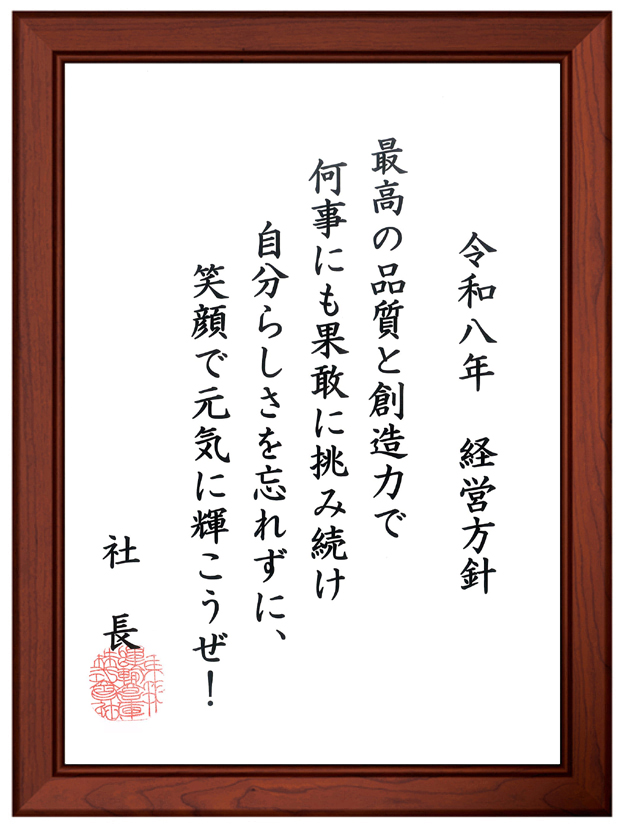 令和八年　経営方針
最高の品質と創造力で
何事にも果敢に挑み続け
自分らしさを忘れずに、
笑顔で元気に輝こうぜ！
社　長